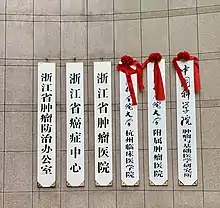 浙江省肿瘤防治办公室
浙江省癌症中心
浙江省肿瘤医院
杭州临床医学院
附属肿瘤医院
中国科学院
肿瘤与基础医学研究所